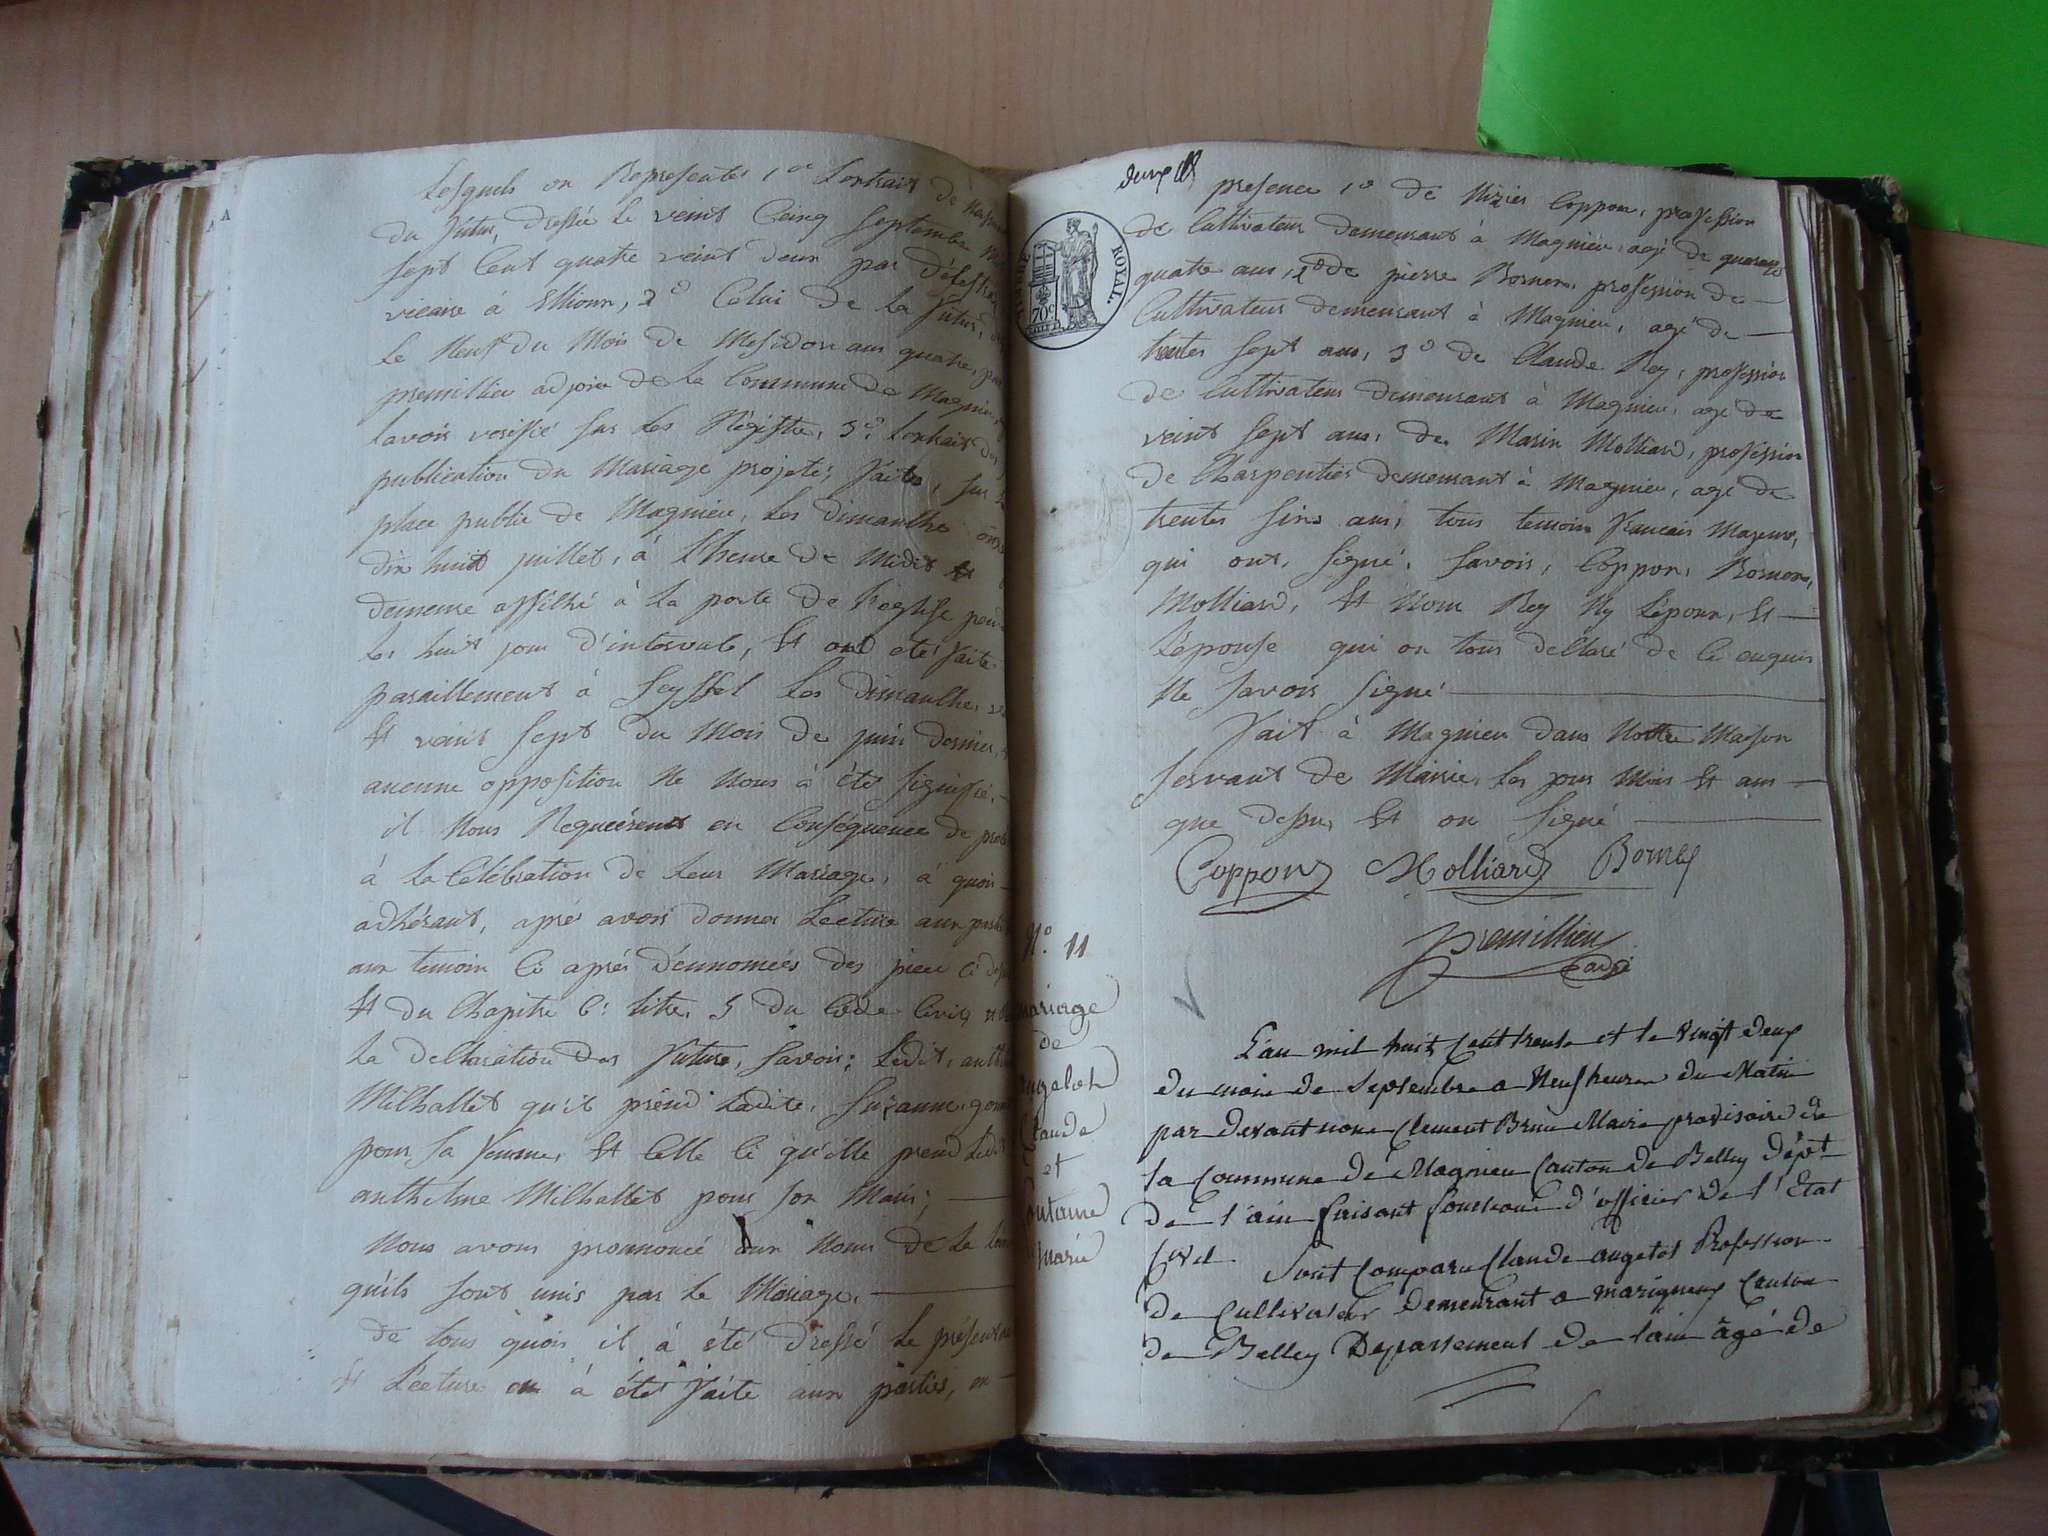 Lesquels on Representés, 1.º Lextrait de
du futur, dressée le veint Cinq Septembre
sept Cent quatre veint deux par
vicaire à 2.º Celui de la future,
le Neuf du Mois de Mesidore ans quatre,
premillieu adjoin de la Commune de Magnieu,
lavoir verifié sur les Régistre, 3.º Lextrait des
publication du Mariage projetés, faites, sur
place public de Magnieu, les dimanche
dix huit juillet, à Lheure de Midit et
demeure affiché à la porte de l'eglise
les huit jour d'interval, Et ont eté faite
paraillement à Seyssel les dimanche
Et veint sept du Mois de juin dernier,
aucunne opposition Ne Nous à été signiffié.
il Nous Requeérent en Conséquence de
à la Célébration de leur Mariage, à quoi
adhérant, aprés avoir donner Lecture aux
aux temoin Ci aprés dénnomées des piece
Et du Chapitre 6: titre, 5 du Code Civil
la déClaration des future, savoir: Ledit,
Milhallet qu'il prend Ladite, Suzanne
pour sa femme, Et Celle Ci qu'elle prend Ledit
anthelme Milhallet pour son Mari;
Nous avons pronnoncé aux Noms de la
quils sont unis par le Mariage.
de tous quoi il à été dressé le présent
Et Lecture en à été faite aux parties, en
deux
presence 1.º de Nizier Coppon, profession
de Cultivateur demeurant à Magnieu, agé de quarante
quatre ans, 2.º de pierre profession de
Cultivateur demeurant à Magnieu, agé de
trentes sept ans, 3.º de Claude Rey, profession
de Cultivateur demeurant à Magnieu, agé de
veint sept ans, de Marin Molliard, profession
de Charpentier demeurant à Magnieu, agé de
trentes ans, tous temoin francais Majeurs,
qui ont, signé, savoir, Coppon,
Molliard, Et Nom Rey Ny Lépoux, Et
Lépouse qui on tous déClaré de Ce enquis
Ne savoir signé
fait à Magnieu dans Nottre Maison
servant de Mairie, les jour Mois Et ans
que dessus Et on signé
TIMBRE ROYAL.
70c
Coppon Molliard
premillieu
adj
N.º 11
mariage
de
angelot
Claude
et
fontaine
marie
L'an mil huit Cent trente et le vingt deux
du mois de Septembre a Neuf heures du Matin
par devant nous Clement Maire provisoire de
la Commune de Magnieu Canton de Belley dépt
de l'ain faisant fonctions d'officier de l'Etat
Civil Sont Comparu Claude angelot Profession
de Cultivateur demeurant a marignieux Canton
de Belley Departement de l'ain âgé de